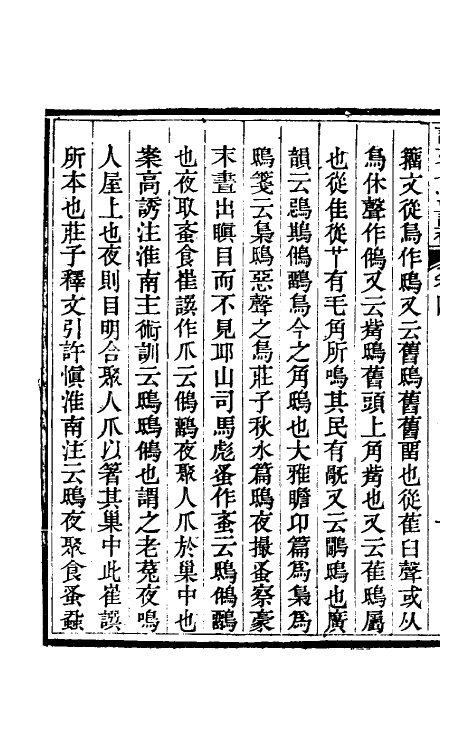 籒文從鳥作鴟又云舊鴟舊舊畱也從萑臼聲或从
鳥休聲作鵂又云觜鴟舊頭上角觜也又云萑鴟屬
也從隹從𦫳有毛角所鳴其民有旤又云鸋鴟也廣
韻云鵋鶀鵂鶹鳥今之角鴟也大雅瞻卬篇爲梟爲
鴟箋云梟鴟惡聲之鳥莊子秋水篇鴟夜撮蚤察豪
末晝出瞋目而不見邱山司馬彪蚤作蚉云鴟鵂鶹
也夜取蚉食崔譔作爪云鵂鶹夜聚人爪於巢中也
案高誘注淮南主術訓云鴟鴟鵂也謂之老菟夜鳴
人屋上也夜則目明合聚人爪以著其巢中此崔譔
所本也莊子釋文引許愼淮南注云鴟夜聚食蚤蝨